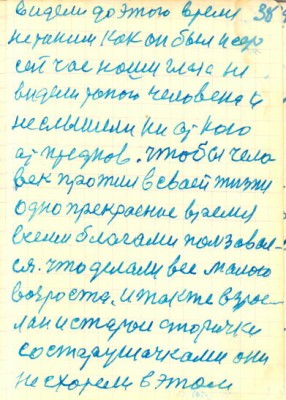 видели до этого время. 38
не таким как он был и ср
сей час наши глаза не
видели такого человека и
не слышели ни от кого
от предков. чтобы чело
век прожил в сваей жизни
одно прекрасные время
всеми благами ползовал-
ся. что делали все малою
возроста, и также взрос-
лаи и старые сторички
со старушачками они
не сходели в этом